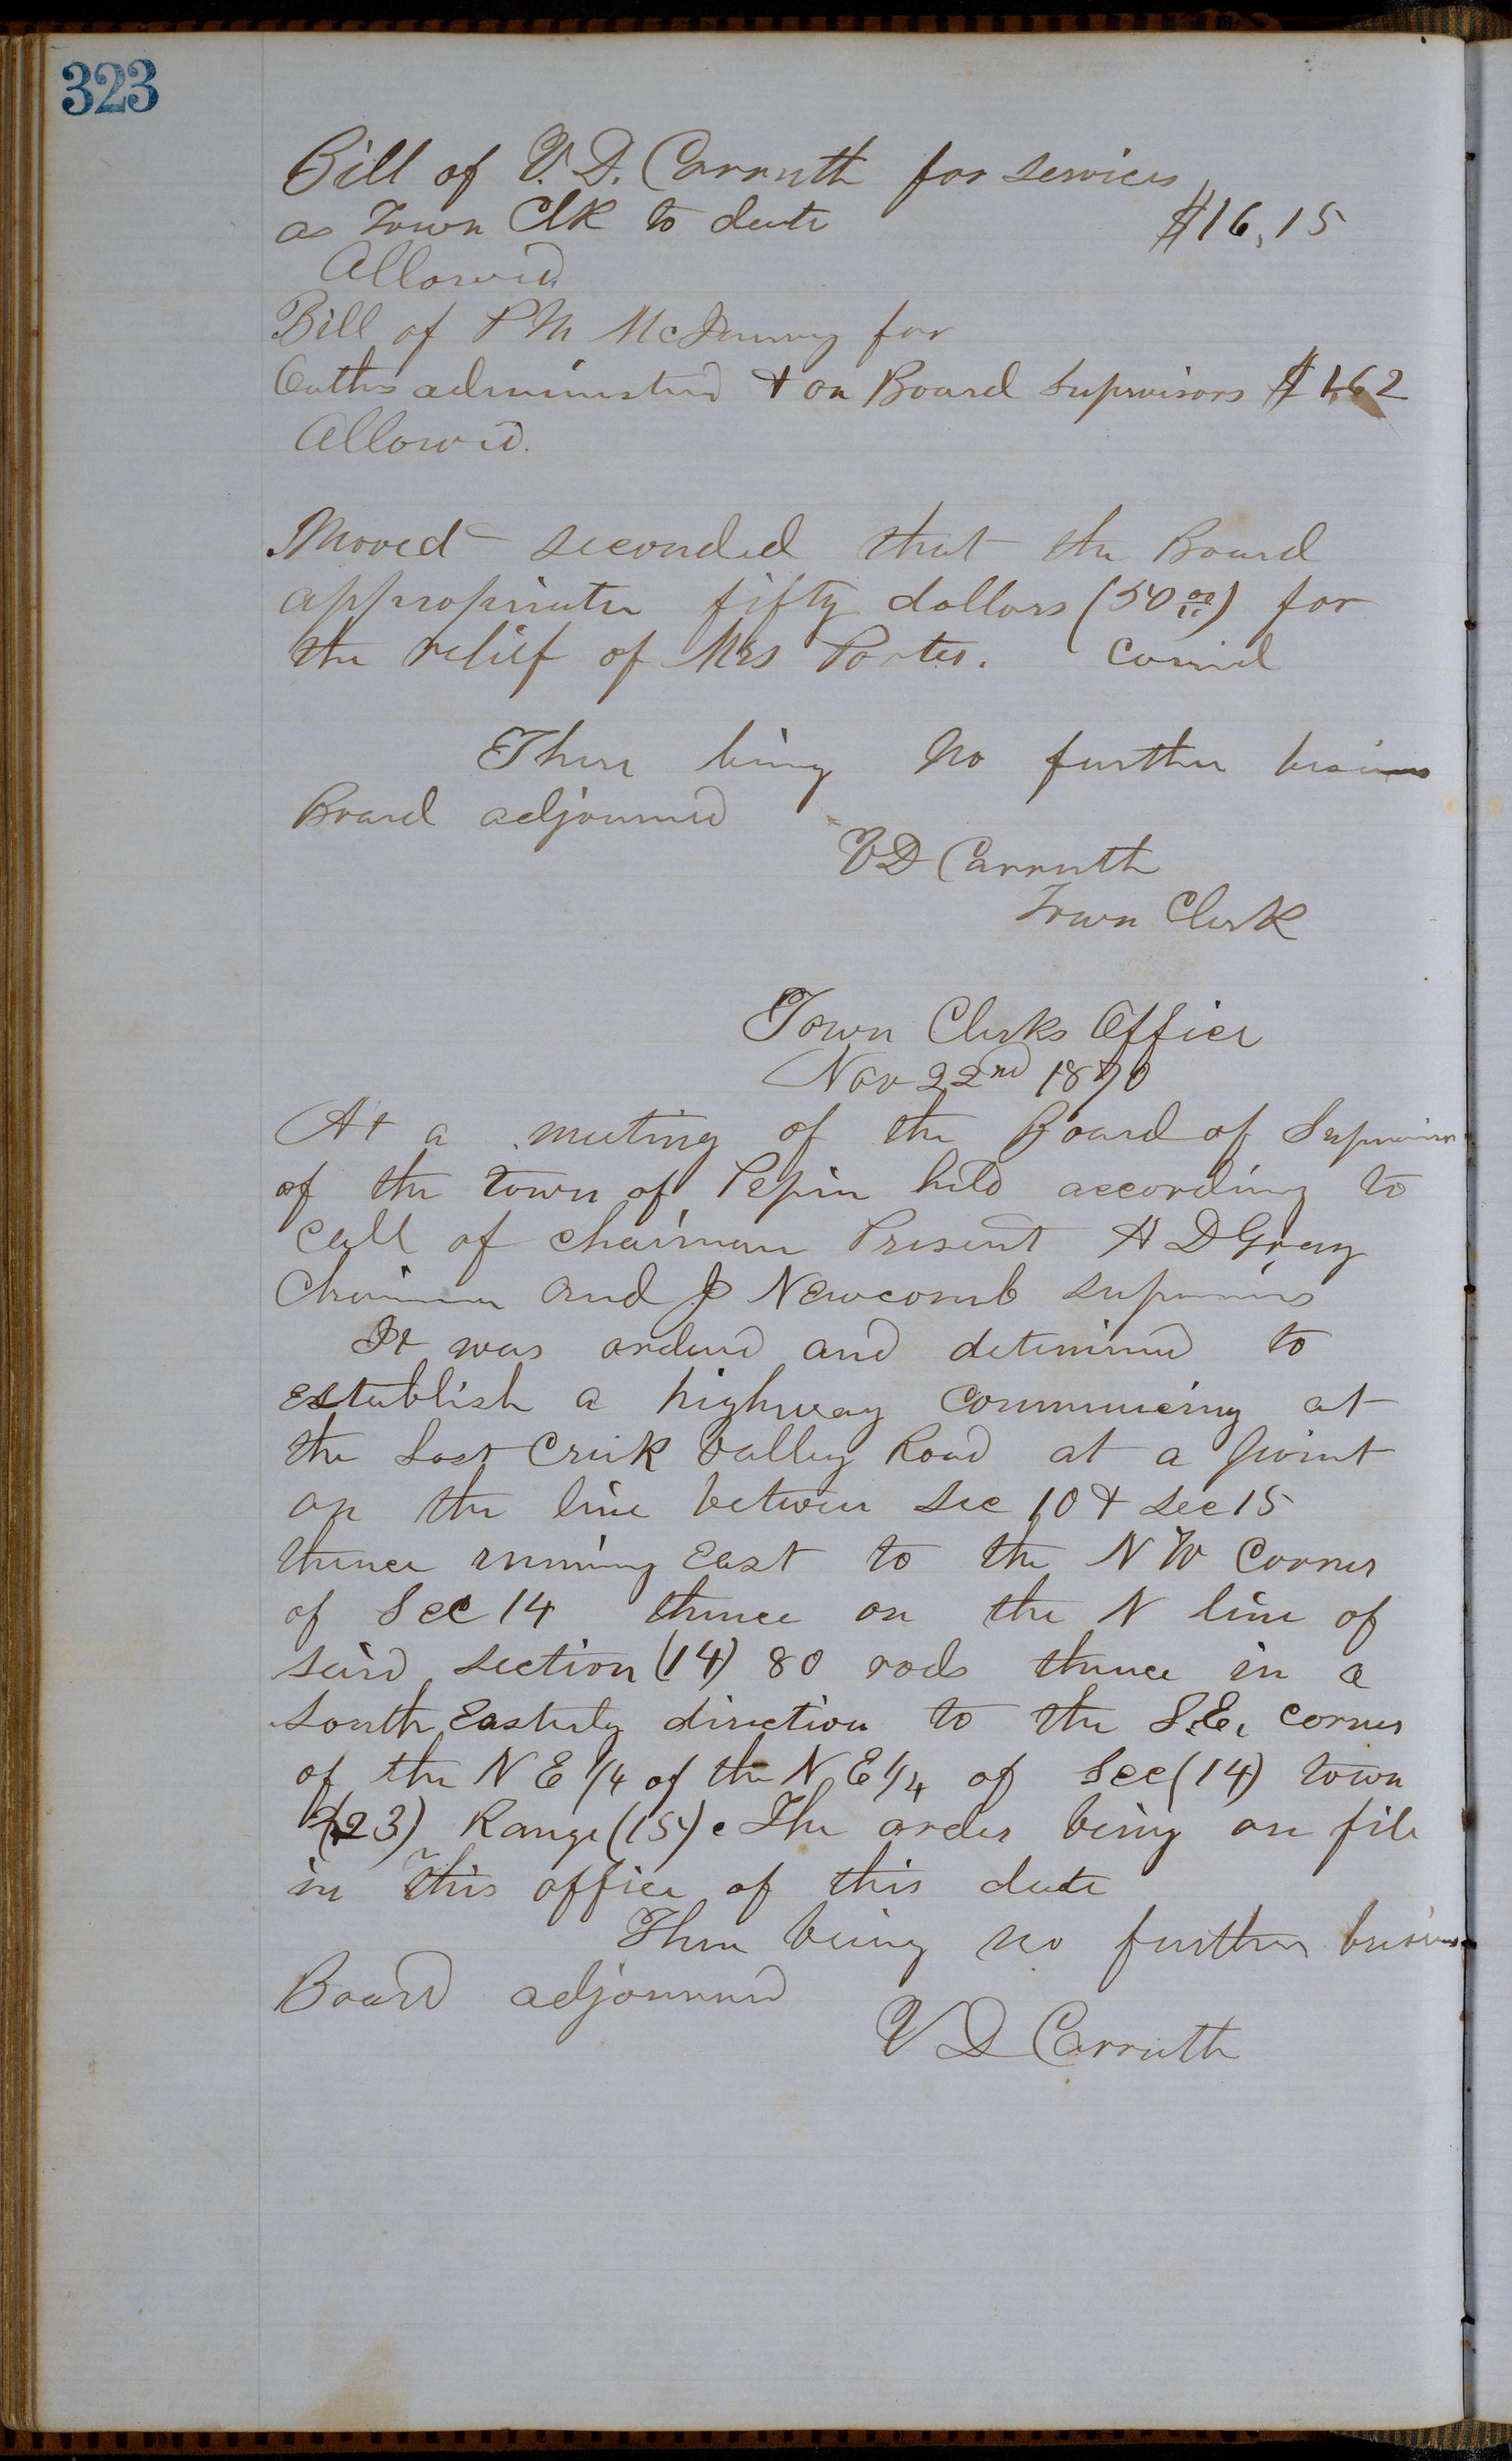 323
Bill of V. D. Carruth for services
as Town Clk to date $16,15
Allowed.
Bill of P M for
Oaths administered & on Board Supervisors $1,62
Allowed.
Moved seconded that the Board
appropriate fifty dollars (50 00) for
the relief of Mrs Porter. Carried
There being no further business
Board adjourned
V D Carruth
Town Clerk
Town Clerks Office
Nov 22nd 1870
At a meeting of the Board of Supervisors
of the Town of Pepin held according to
call of chairman Present H D Gray
Chairman and J Newcomb supervisors
It was ordered and determined to
establish a highway commencing at
the Lost Creek Valley Road at a point
on the line between Sec 10 & Sec 15
thence running East to the N W Corner
of Sec 14 thence on the N line of
said section (14) 80 rods thence in a
South Easterly direction to the S.E. corner
of the N E 1/4 of the N E 1/4 of Sec (14) town
(23) Range (15). The order being on file
in this office of this date
There being no further business
Board adjourned
V D Carruth